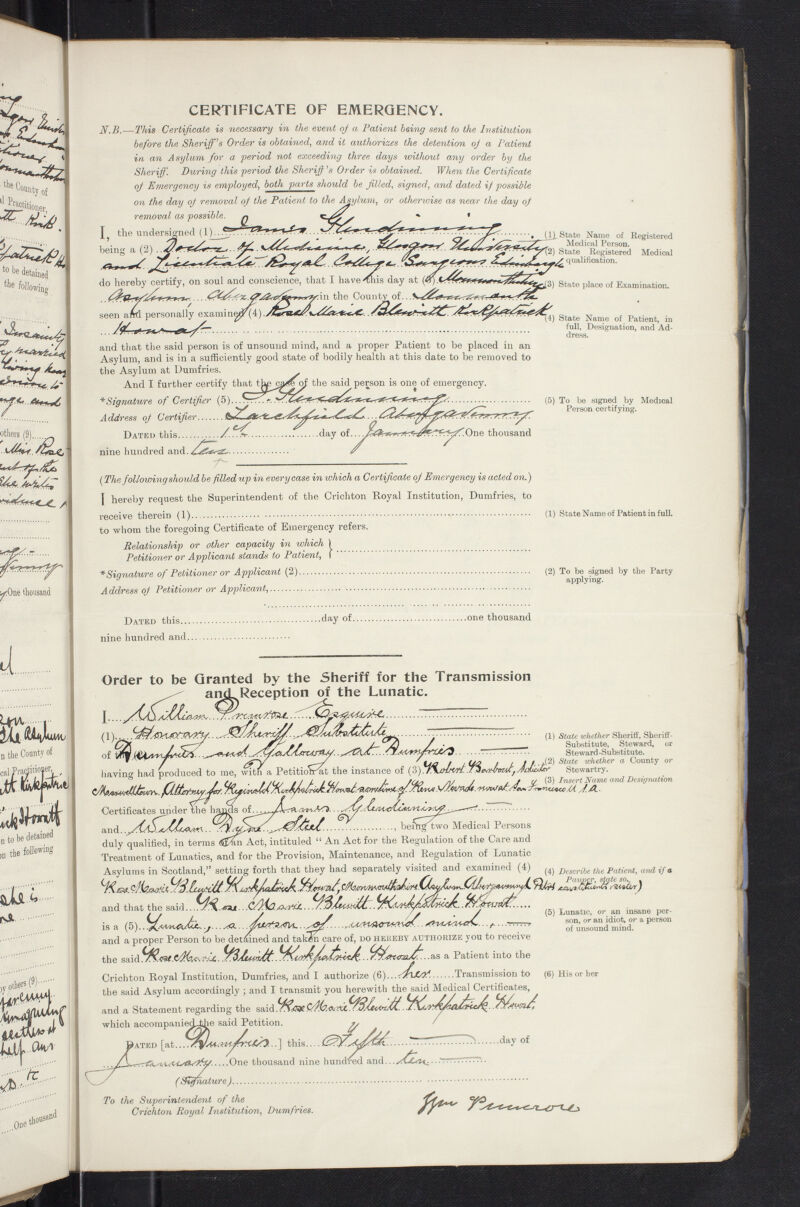 CERTIFICATE OF EMERGENCY.
N.B.—This Certificate is necessary in the event of a Patient being sent to the Institution
before the Sheriff's Order is obtained, and it authorizes the detention of a Patient
in an Asylum for a period not exceeding three days without any order by the
Sheriff. During this period the Sheriff's Order is obtained. When the Certificate
of Emergency is employed, both parts should be filled, signed, and dated if possible
on the day of removal of the Patient to the Asylum, or otherwise as near the day of
removal as possible.
I, the undersigned (1) James Glendinning
(1) State Name of Registered Medical Person.
being a (2) Doctor of Medicine, Glasgow University
and Licentiate Royal College Surgeons Edinburgh
(2) State Registered Medical qualification.
do hereby certify, on soul and conscience, that I have this day at (3) Monmouthshire
(3) State place of Examination.
Asylum, Abergavenny in the County of Monmouth
seen and personally examined (4) Rose Marie Blewitt Kirkpatrick
Howat
(4) State Name of Patient, in full, Designation, and Address.
and that the said person is of unsound mind, and a proper Patient to be placed in an
Asylum, and is in a sufficiently good state of bodily health at this date to be removed to
the Asylum at Dumfries.
And I further certify that the case of the said person is one of emergency.
*Signature of Certifier (5) J. Glendinning
(5) To be signed by Medical Person certifying.
Address of Certifier Larchfield Abergavenny
DATED this 1st day of January One thousand
nine hundred and ten
(The following should be filled up in every case in which a Certificate of Emergency is acted on.)
I hereby request the Superintendent of the Crichton Royal Institution, Dumfries, to
receive therein (1)
(1) State Name of Patient in full.
to whom the foregoing Certificate of Emergency refers.
Relationship or other capacity in which
Petitioner or Applicant stands to Patient,
*Signature of Petitioner or Applicant (2)
(2) To be signed by the Party applying.
Address of Petitioner or Applicant,
DATED this day of one thousand
nine hundred and
Order to be Granted by the Sheriff for the Transmission
and Reception of the Lunatic.
I William Primrose Esquire
(1) Honorary Sheriff Substitute
(1) State whether Sheriff, Sheriff-Substitute, Steward, or Steward-Substitute.
of Dumfries and Galloway at Dumfries
(2) State whether a County or Stewartry.
having had produced to me, with a Petition at the instance of (3) Robert Barbour, Solicitor
(3) Insert Name and Designation
Maxwelltown Attorney for Reginald Kirkpatrick Howat now at San Francisco U.S.A.
Certificates under the hands of James Glendinning
and William Dyne Steel, being two Medical Persons
duly qualified, in terms of an Act, intituled "An Act for the Regulation of the Care and
Treatment of Lunatics, and for the Provision, Maintenance, and Regulation of Lunatic
Asylums in Scotland," setting forth that they had separately visited and examined (4)
(4) Describe the Patient, and if a Pauper, state so.
Rose Marie Blewitt Kirkpatrick Howat, Monmouthshire Asylum Abergavenny
and that the said Rose Marie Blewitt Kirkpatrick Howat
is a (5) Lunatic, a person of unsound mind,
(5) Lunatic, or an insane person, or an idiot, or a person of unsound mind.
and a proper Person to be detained and taken care of, DO HEREBY AUTHORIZE you to receive
the said Rose Marie Blewitt Kirkpatrick Howat as a Patient into the
Crichton Royal Institution, Dumfries, and I authorize (6) her Transmission to
(6) His or her
the said Asylum accordingly; and I transmit you herewith the said Medical Certificates,
and a Statement regarding the said Rose Marie Blewitt Kirkpatrick Howat,
which accompanied the said Petition.
DATED [at Dumfries ] this Fifth day of
January One thousand nine hundred and ten
(Signature)
To the Superintendent of the
Crichton Royal Institution, Dumfries.
Wm Primrose